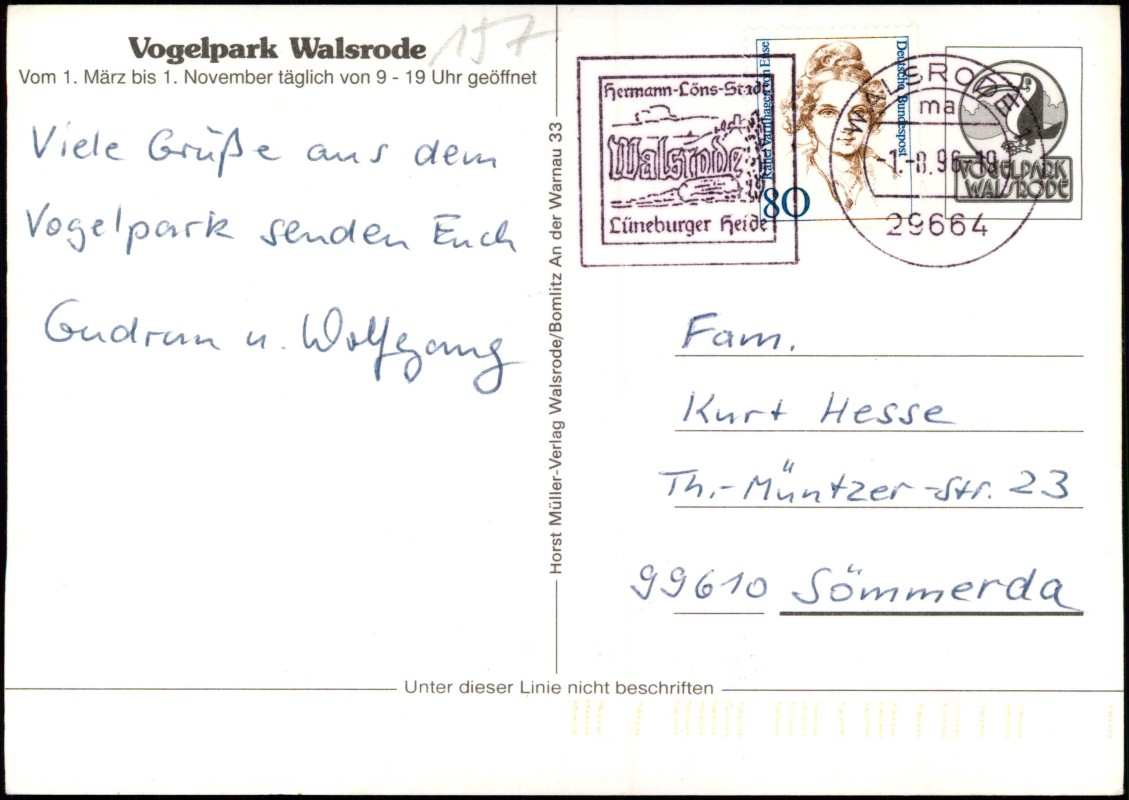 Vogelpark Walsrode
157
Vom 1. März bis 1. November täglich von 9 - 19 Uhr geöffnet
Viele Grüße aus dem
Vogelpark senden Euch
Gudrun u. Wolfgang
Horst Müller-Verlag Walsrode/Bomlitz An der Warnau 33
Hermann-Löns-Stadt
Walsrode
Lüneburger Heide
Rahel Varnhagen von Ense
Deutsche Bundespost
80
WALSRODE
ma
-1.-8.96-18
29664
VOGELPARK
WALSRODE
Fam.
Kurt Hesse
Th.-Müntzer-Str. 23
99610 Sömmerda
Unter dieser Linie nicht beschriften